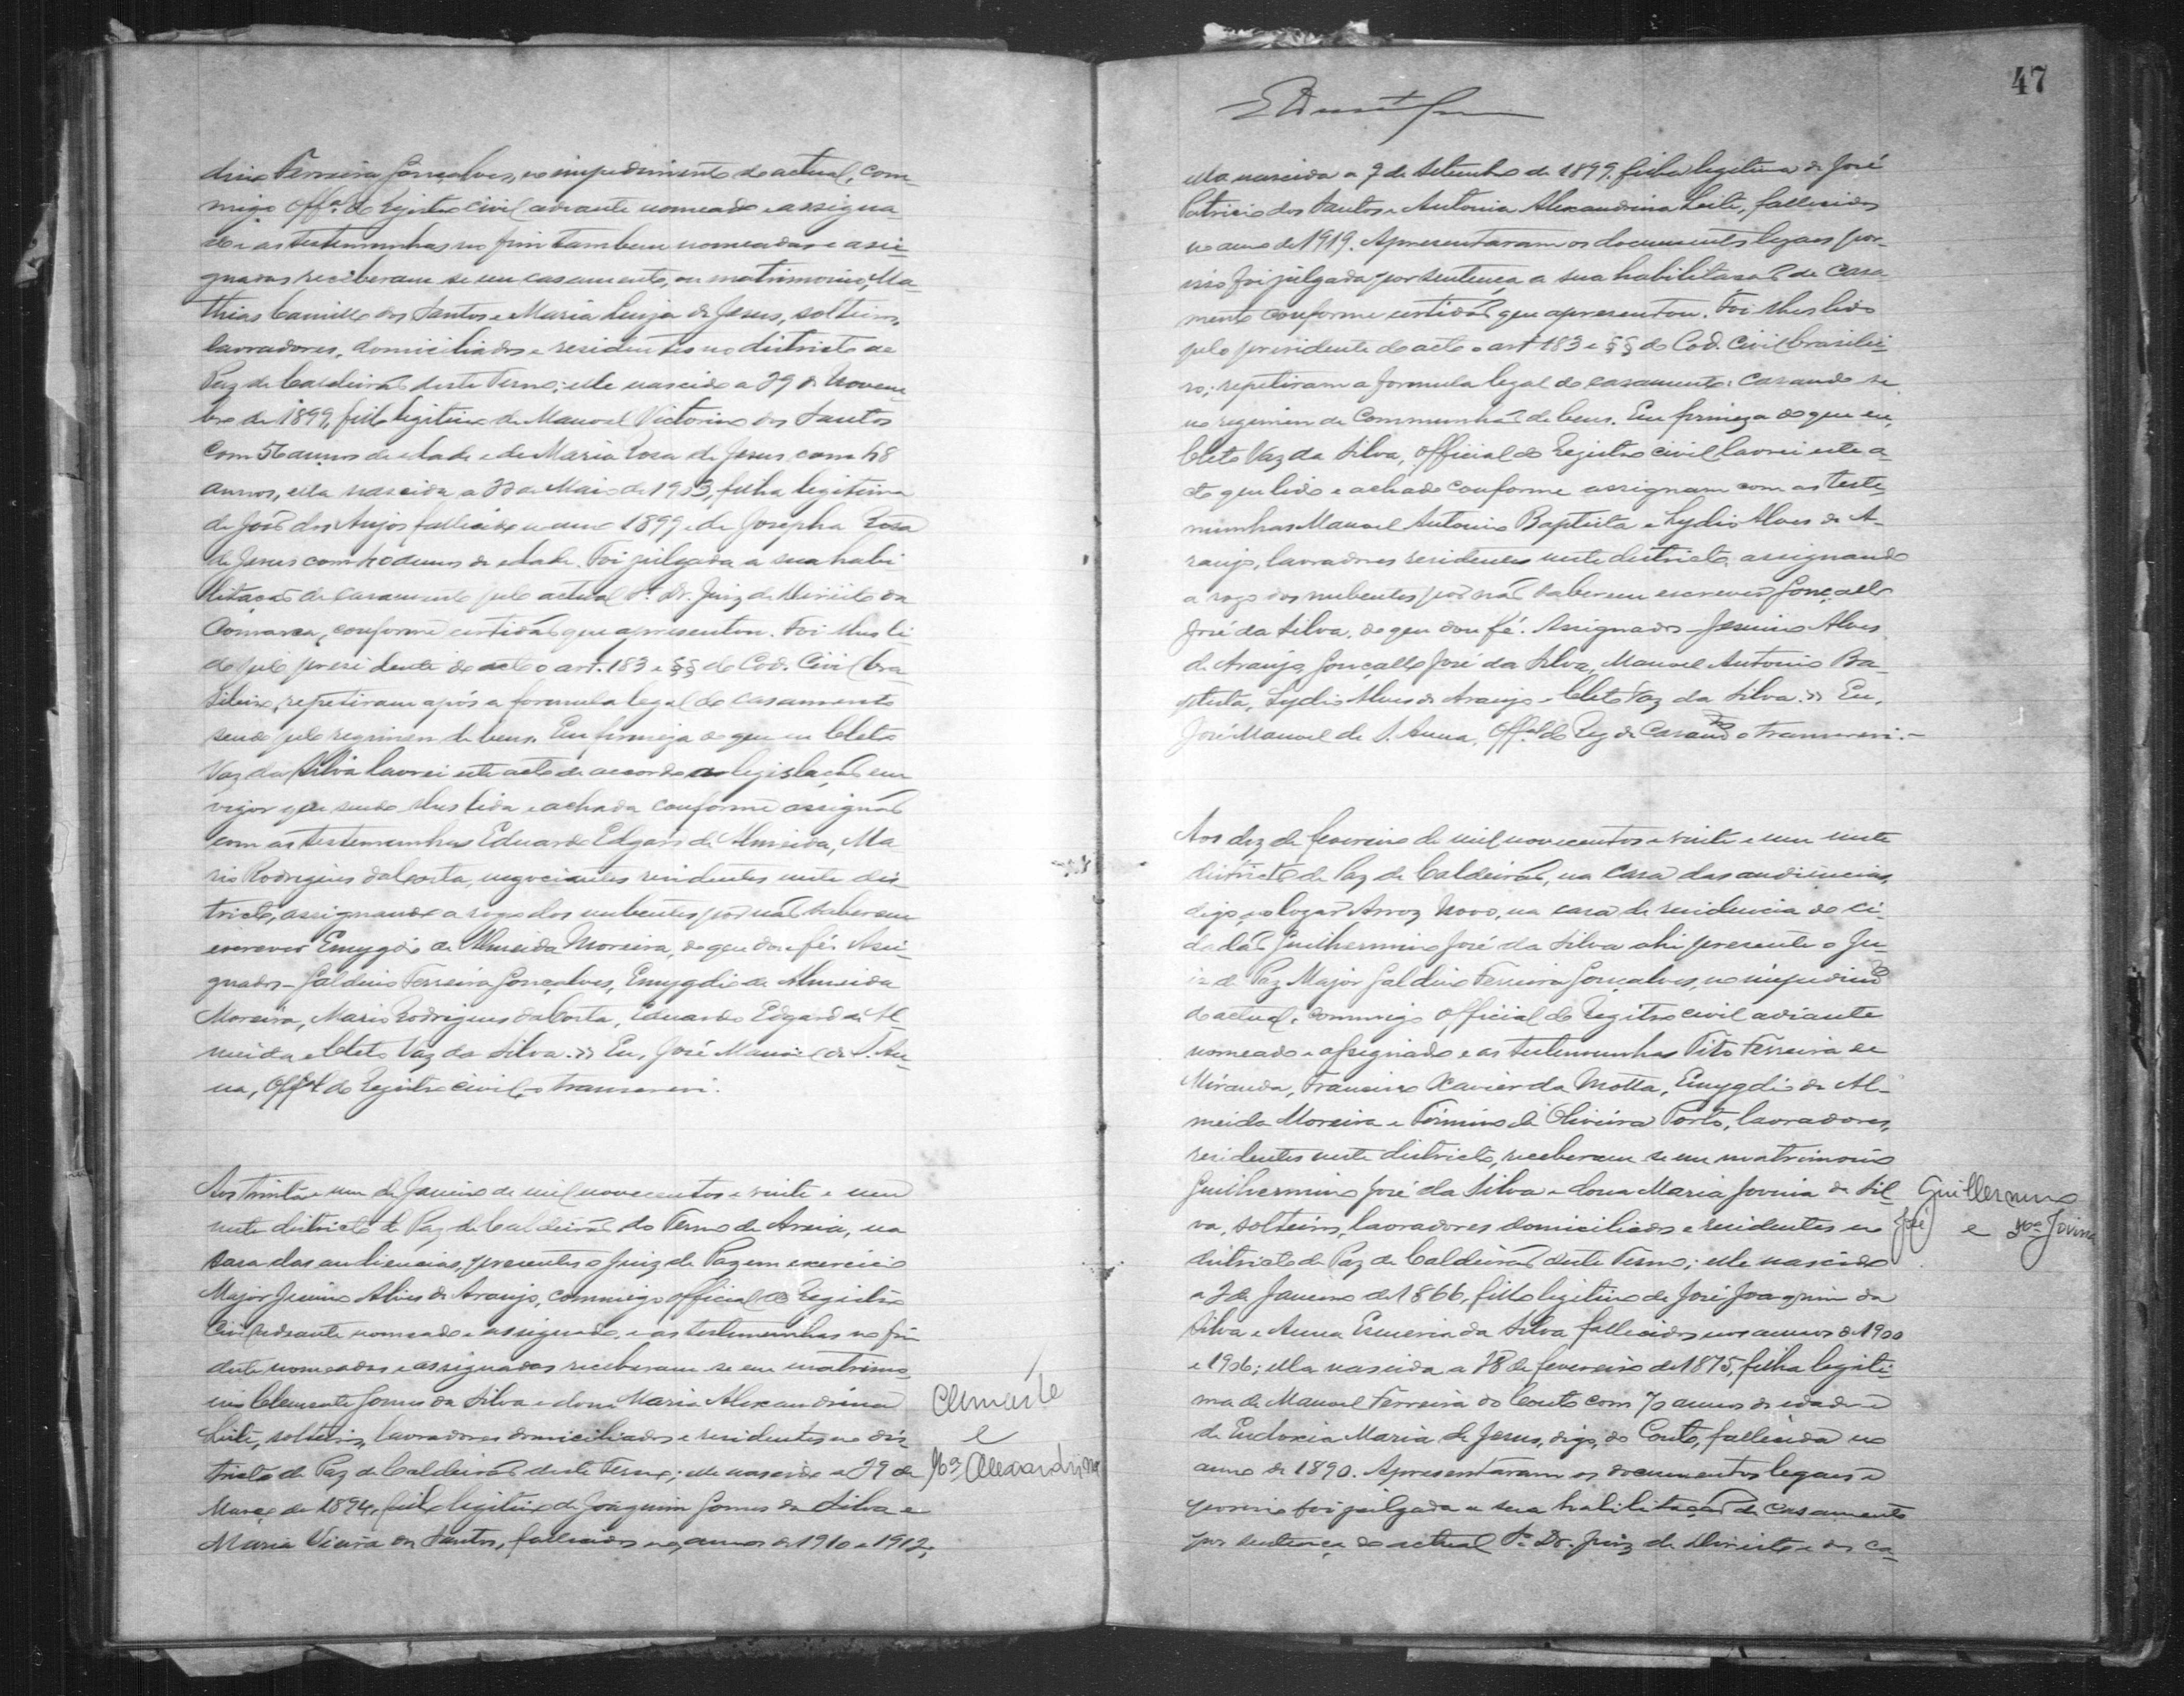 dino Ferreira Gonçalves, no impedimento do actual, com-
migo Offal do Registro civil adiante nomeado e assigna-
do e as testemunhas no fim tambem nomeadas e assi-
gnadas receberam-se em casamento, ou matrimonio, Ma-
thias Camillo dos Santos e Maria Luiza de Jesus, solteiros,
lavradores, domiciliados e residentes no districto de
Paz de Caldeirão deste Termo; elle nascido a 29 de Novem-
bro de 1899, filho legitimo de Manoel Victorino dos Santos
com 56 annos de edade e de Maria Rosa de Jesus com 48
annos, ella nascida a 22 de Maio de 1903, filha legitima
de José dos Anjos fallecido no anno 1899 e de Josepha Rosa
de Jesus com 40 annos de edade. Foi julgada a sua habi
litação de casamento pelo actual Sr. Dr. Juiz de Direito da
Comarca, conforme certidão que apresentou. Foi-lhes li-
do pelo presidente do acto o art. 183 e §§ do Cod. Civil bra
sileiro, repetiram após a formula legal do casamento
sendo pelo regimen de bens. Em firmeza do que eu Cleto
Vaz da Silva lavrei este acto de accordo a legislação em
vigor que sendo lhes lida e achada conforme assignão
com as testemunhas Eduardo Edgard de Almeida, Ma
rio Rodrigues da Costa, negociantes residentes neste dis-
tricto, assignando a rogo dos nubentes por não saberem
escrever Emygdio de Almeida Moreira, do que dou fé. Assi-
gnados - Galdino Ferreira Gonçalves, Emygdio de Almeida
Moreira, Mario Rodrigues da Costa, Eduardo Edgard de Al-
meida e Cleto Vaz da Silva. » Eu, José Manoel de S. An-
na, Offal do Registro civil, o transcrevi.
Aos trinta e um de Janeiro de mil novecentos e vinte e um
neste districto de Paz de Caldeirão do Termo de Areia, na
casa das audiencias, presentes o Juiz de Paz em exercicio
Major Jesuino Alves de Araujo, commigo official do Registro
Civil adiante nomeado e assignado, e as testemunhas no fim
deste nomeadas e assignadas receberam-se em matrimo-
nio Clemente Gomes da Silva e dona Maria Alexandrina
Leite, solteiros, lavradores domiciliados e residentes no dis-
tricto de Paz de Caldeirão deste Termo; elle nascido a 29 de
Março de 1894, filho legitimo de Joaquim Gomes da Silva e
Maria Vieira dos Santos, fallecidos nos annos de 1910 e 1912;
Clemente
e
Ma Alexandrina
47
ella nascida a 7 de Setembro de 1899, filha legitima de José
Patricio dos Santos e Antonia Alexandrina Leite, fallecidos
no anno de 1919. Apresentaram os documentos legaes por-
isso foi julgada por sentença a sua habilitação de casa-
mento conforme certidão que apresentou. Foi-lhes lido
pelo presidente do acto o art 183 e §§ do Cod. Civil brasilei-
ro; repetiram a formula legal do casamento: casando se
no regimen da Communhão de bens. Em firmeza do que eu,
Cleto Vaz da Silva, official do Registro civil lavrei este a-
cto que lido e achado conforme assignam com as teste-
munhas Manoel Antonio Baptista e Lydio Alves de A-
raujo, lavradores residentes neste districto, assignando
a rogo dos nubentes por não saberem escrever Gonçallo
José da Silva, do que dou fé. Assignados - Jesuino Alves
de Araujo, Gonçallo José da Silva, Manoel Antonio Ba-
ptista, Lydio Alves de Araujo e Cleto Vaz da Silva. » Eu,
José Manoel de S. Anna, Offal do Reg. de Casamto o transcrevi. -
Aos dez de fevereiro de mil novecentos e vinte e um neste
districto de Paz de Caldeirão, na casa das audiencias,
digo, no logar Arroz Novo, na casa de residencia do ci-
dadão Guilhermino José da Silva ahi presente o Ju-
iz de Paz Major Galdino Ferreira Gonçalves, no impedimto
do actual, commigo official do Registro civil adiante
nomeado e assignado e as testemunhas Tito Ferreira de
Miranda, Francisco Xavier da Motta, Emygdio de Al-
meida Moreira e Firmino de Oliveira Porto, lavradores,
residentes neste districto, receberam se em matrimonio
Guilhermino José da Silva e dona Maria Jovina da Sil-
va, solteiros, lavradores domiciliados e residentes no
districto de Paz de Caldeirão deste Termo; elle nascido
a 2 de Janeiro de 1866, filho legitimo de José Joaquim da
Silva e Anna Esmeria da Silva fallecidos nos annos de 1900
e 1906; ella nascida a 28 de fevereiro de 1875, filha legiti-
ma de Manoel Ferreira do Couto com 70 annos de edade e
de Eudoxia Maria de Jesus, digo, do Couto, fallecida no
anno de 1890. Apresentaram os documentos legaes e
por isso foi julgada a sua habilitação de casamento
por sentença do actual Sr. Dr. Juiz de Direito e dos ca-
Guillermino
José e Ma Jovina